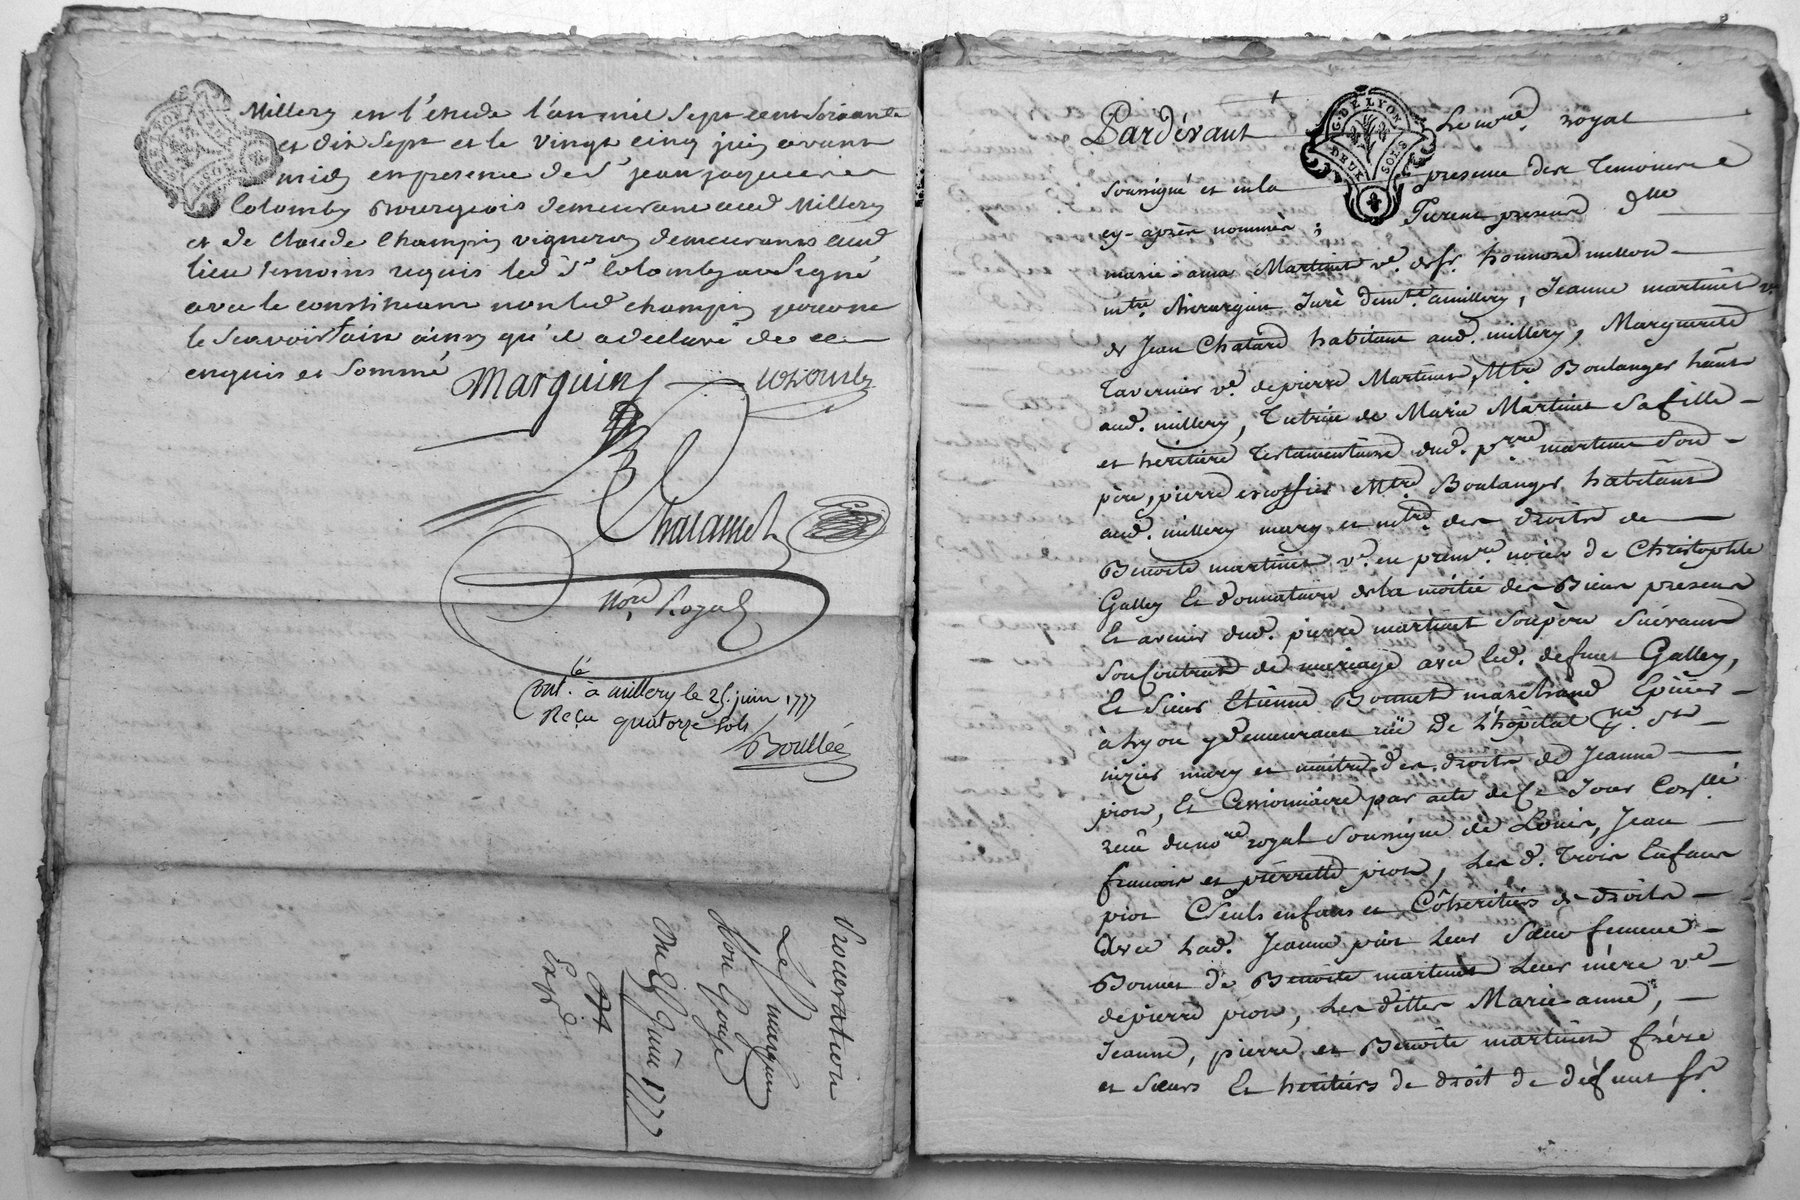 Millery en l'étude l'an mil sept cent soixante
et dix sept et le vingt cinq juin avant
midy en presence de Sr jean jaques
Colomby Bourgeois demeurant aud Millery
et de Claude Champin vigneron demeurants aud
lieu temoins requis led Sr Colomby a signé
avec le constituant non led champin pour ne
le scavoir faire ainsy qu'il a declaré de ce
enquis et sommé
Marguin Colomby
Charamel
Nore Royal
Contlé à millery le 25 juin 1777
Reçu quatorze sols
Boullée
Procuration
Sr marguin
Du 25 Juin 1777
Expd
G. DE LYON
DEUX SOLS
Pardevant Le nore royal
soussigné et en la presence des Temoins
cy-après nommés ; Furent presents dlle
marie-anne Martinet ve de sr honnoré millon
mtre chirurgien Juré demt à millery, Jeanne martinet ve
de Jean Chatard habitant aud. millery, Marguerite
Tavernier ve de pierre Martinet, Mtre Boulanger hant
aud. millery, Tutrice de Marie Martinet sa fille
et heritiere Testamentaire dud. prre martinet son
père, pierre escoffier Mtre Boulanger habitant
aud. millery mary et mtre des droits de
Benoite martinet ve en premre noces de Christophle
Galley Et donnataire de la moitié des Biens presens
Et avenir dud. pierre martinet son père suivant
son Contrat de mariage avec led. defunt Galley,
Et sieur Etienne Bonnet marchand Epicier
à Lyon y demeurant rüe De L'hôpital pse St
nizier mary et maitre des droits de Jeanne
pion, Et Cessionnaire par acte de Ce Jour
reçu du nore royal soussigné de Louis, Jean
francois et pierrette pion, Les d. Trois Enfans
pion seuls enfans et Cohéritiers de droits
Avec Lad. Jeanne pion leur soeur femme
Bonnet de Benoite martinet Leur mère ve
de pierre pion, Les dittes Marie-anne,
Jeanne, pierre et Benoite martinet frère
et soeurs Et heritiers de droit de défunt sr